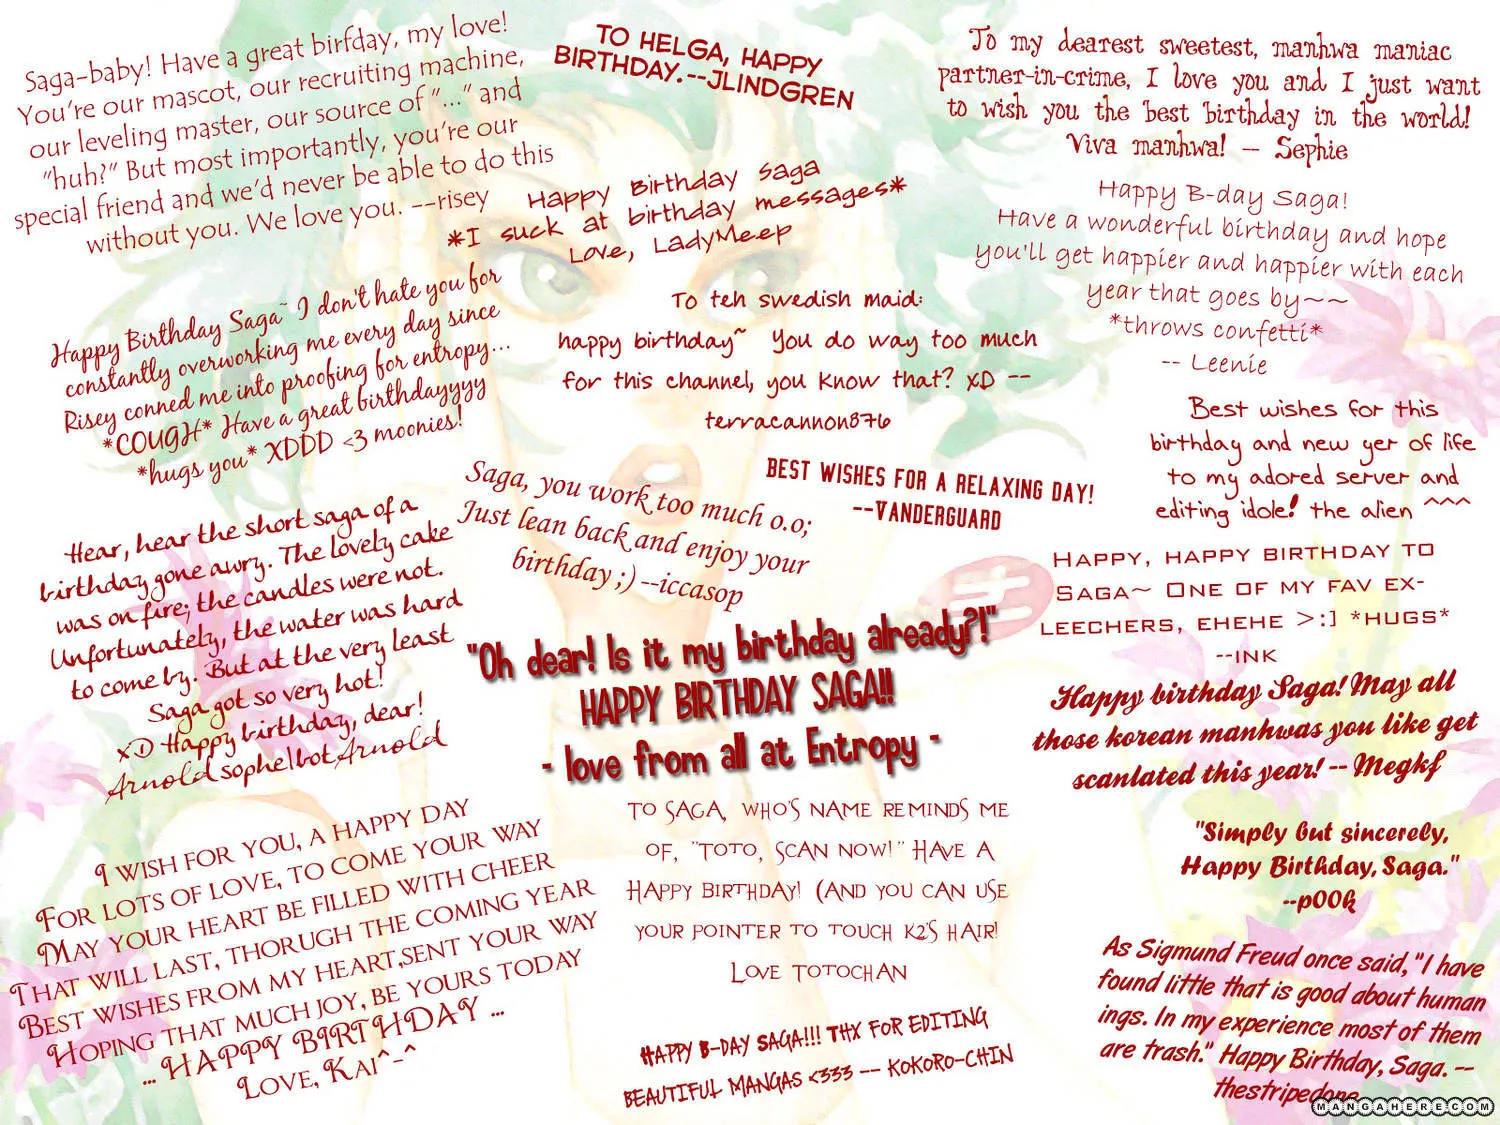 Saga-baby! Have a great birfday, my love!
You're our mascot, our recruiting machine,
our leveling master, our source of "..." and
"huh?" But most importantly, you're our
special friend and we'd never be able to do this
without you. We love you. --risey
TO HELGA, HAPPY
BIRTHDAY.--JLINDGREN
To my dearest sweetest, manhwa maniac
partner-in-crime, I love you and I just want
to wish you the best birthday in the world!
Viva manhwa! -- Sephie
Happy Birthday Saga
*I suck at birthday messages*
Love, LadyMeep
Happy B-day Saga!
Have a wonderful birthday and hope
you'll get happier and happier with each
year that goes by~~
*throws confetti*
-- Leenie
Happy Birthday Saga~ I don't hate you for
constantly overworking me every day since
Risey conned me into proofing for entropy...
*COUGH* Have a great birthdayyyy
*hugs you* XDDD <3 moonies!
To teh swedish maid:
happy birthday~ You do way too much
for this channel, you know that? xD --
terracannon876
Best wishes for this
birthday and new yer of life
to my adored server and
editing idole! the alien ^^^
Saga, you work too much o.o;
Just lean back and enjoy your
birthday ;) --iccasop
BEST WISHES FOR A RELAXING DAY!
--VANDERGUARD
Hear, hear the short saga of a
birthday gone awry. The lovely cake
was on fire; the candles were not.
Unfortunately, the water was hard
to come by. But at the very least
Saga got so very hot!
xD Happy birthday, dear!
Arnold sophelbot Arnold
HAPPY, HAPPY BIRTHDAY TO
SAGA~ ONE OF MY FAV EX-
LEECHERS, EHEHE >:] *HUGS*
--INK
"Oh dear! Is it my birthday already?!"
HAPPY BIRTHDAY SAGA!!!
- love from all at Entropy -
Happy birthday Saga! May all
those korean manhwas you like get
scanlated this year! -- Megkf
I WISH FOR YOU, A HAPPY DAY
FOR LOTS OF LOVE, TO COME YOUR WAY
MAY YOUR HEART BE FILLED WITH CHEER
THAT WILL LAST, THORUGH THE COMING YEAR
BEST WISHES FROM MY HEART,SENT YOUR WAY
HOPING THAT MUCH JOY, BE YOURS TODAY
... HAPPY BIRTHDAY ...
LOVE, KAI^-^
TO SAGA, WHO'S NAME REMINDS ME
OF, "TOTO, SCAN NOW!" HAVE A
HAPPY BIRTHDAY! (AND YOU CAN USE
YOUR POINTER TO TOUCH K2'S HAIR!
LOVE TOTOCHAN
"Simply but sincerely,
Happy Birthday, Saga."
--p00k
HAPPY B-DAY SAGA!!! THX FOR EDITING
BEAUTIFUL MANGAS <333 -- KOKORO-CHIN
As Sigmund Freud once said,"I have
found little that is good about human
ings. In my experience most of them
are trash." Happy Birthday, Saga. --
thestripedone
MANGAHERE.COM